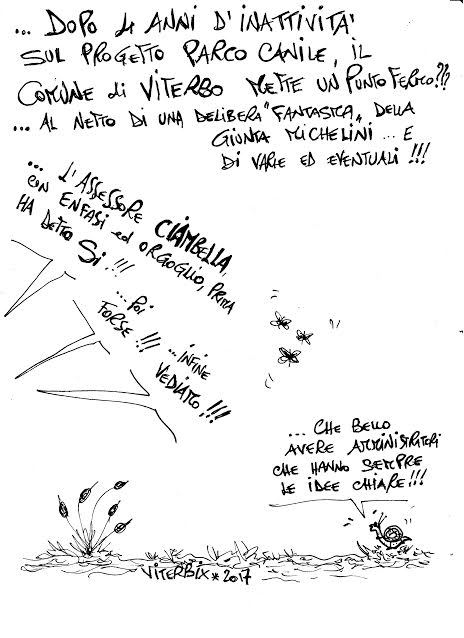 ... DOPO 4 ANNI D'INATTIVITA'
SUL PROGETTO PARCO CANILE, IL
COMUNE di VITERBO METTE UN PUNTO FERMO???
... AL NETTO DI UNA DELIBERA "FANTASTICA" DELLA
GIUNTA MICHELINI ... E
DI VARIE ED EVENTUALI !!!
... L'ASSESSORE CIAMBELLA,
CON ENFASI ed ORGOGLIO, PRIMA
HA DETTO SI !!!
... POI
FORSE !!! ... INFINE
VEDIAMO !!!
... CHE BELLO
AVERE AMMINISTRATORI
CHE HANNO SEMPRE
LE IDEE CHIARE!!!
VITERBIX * 2017